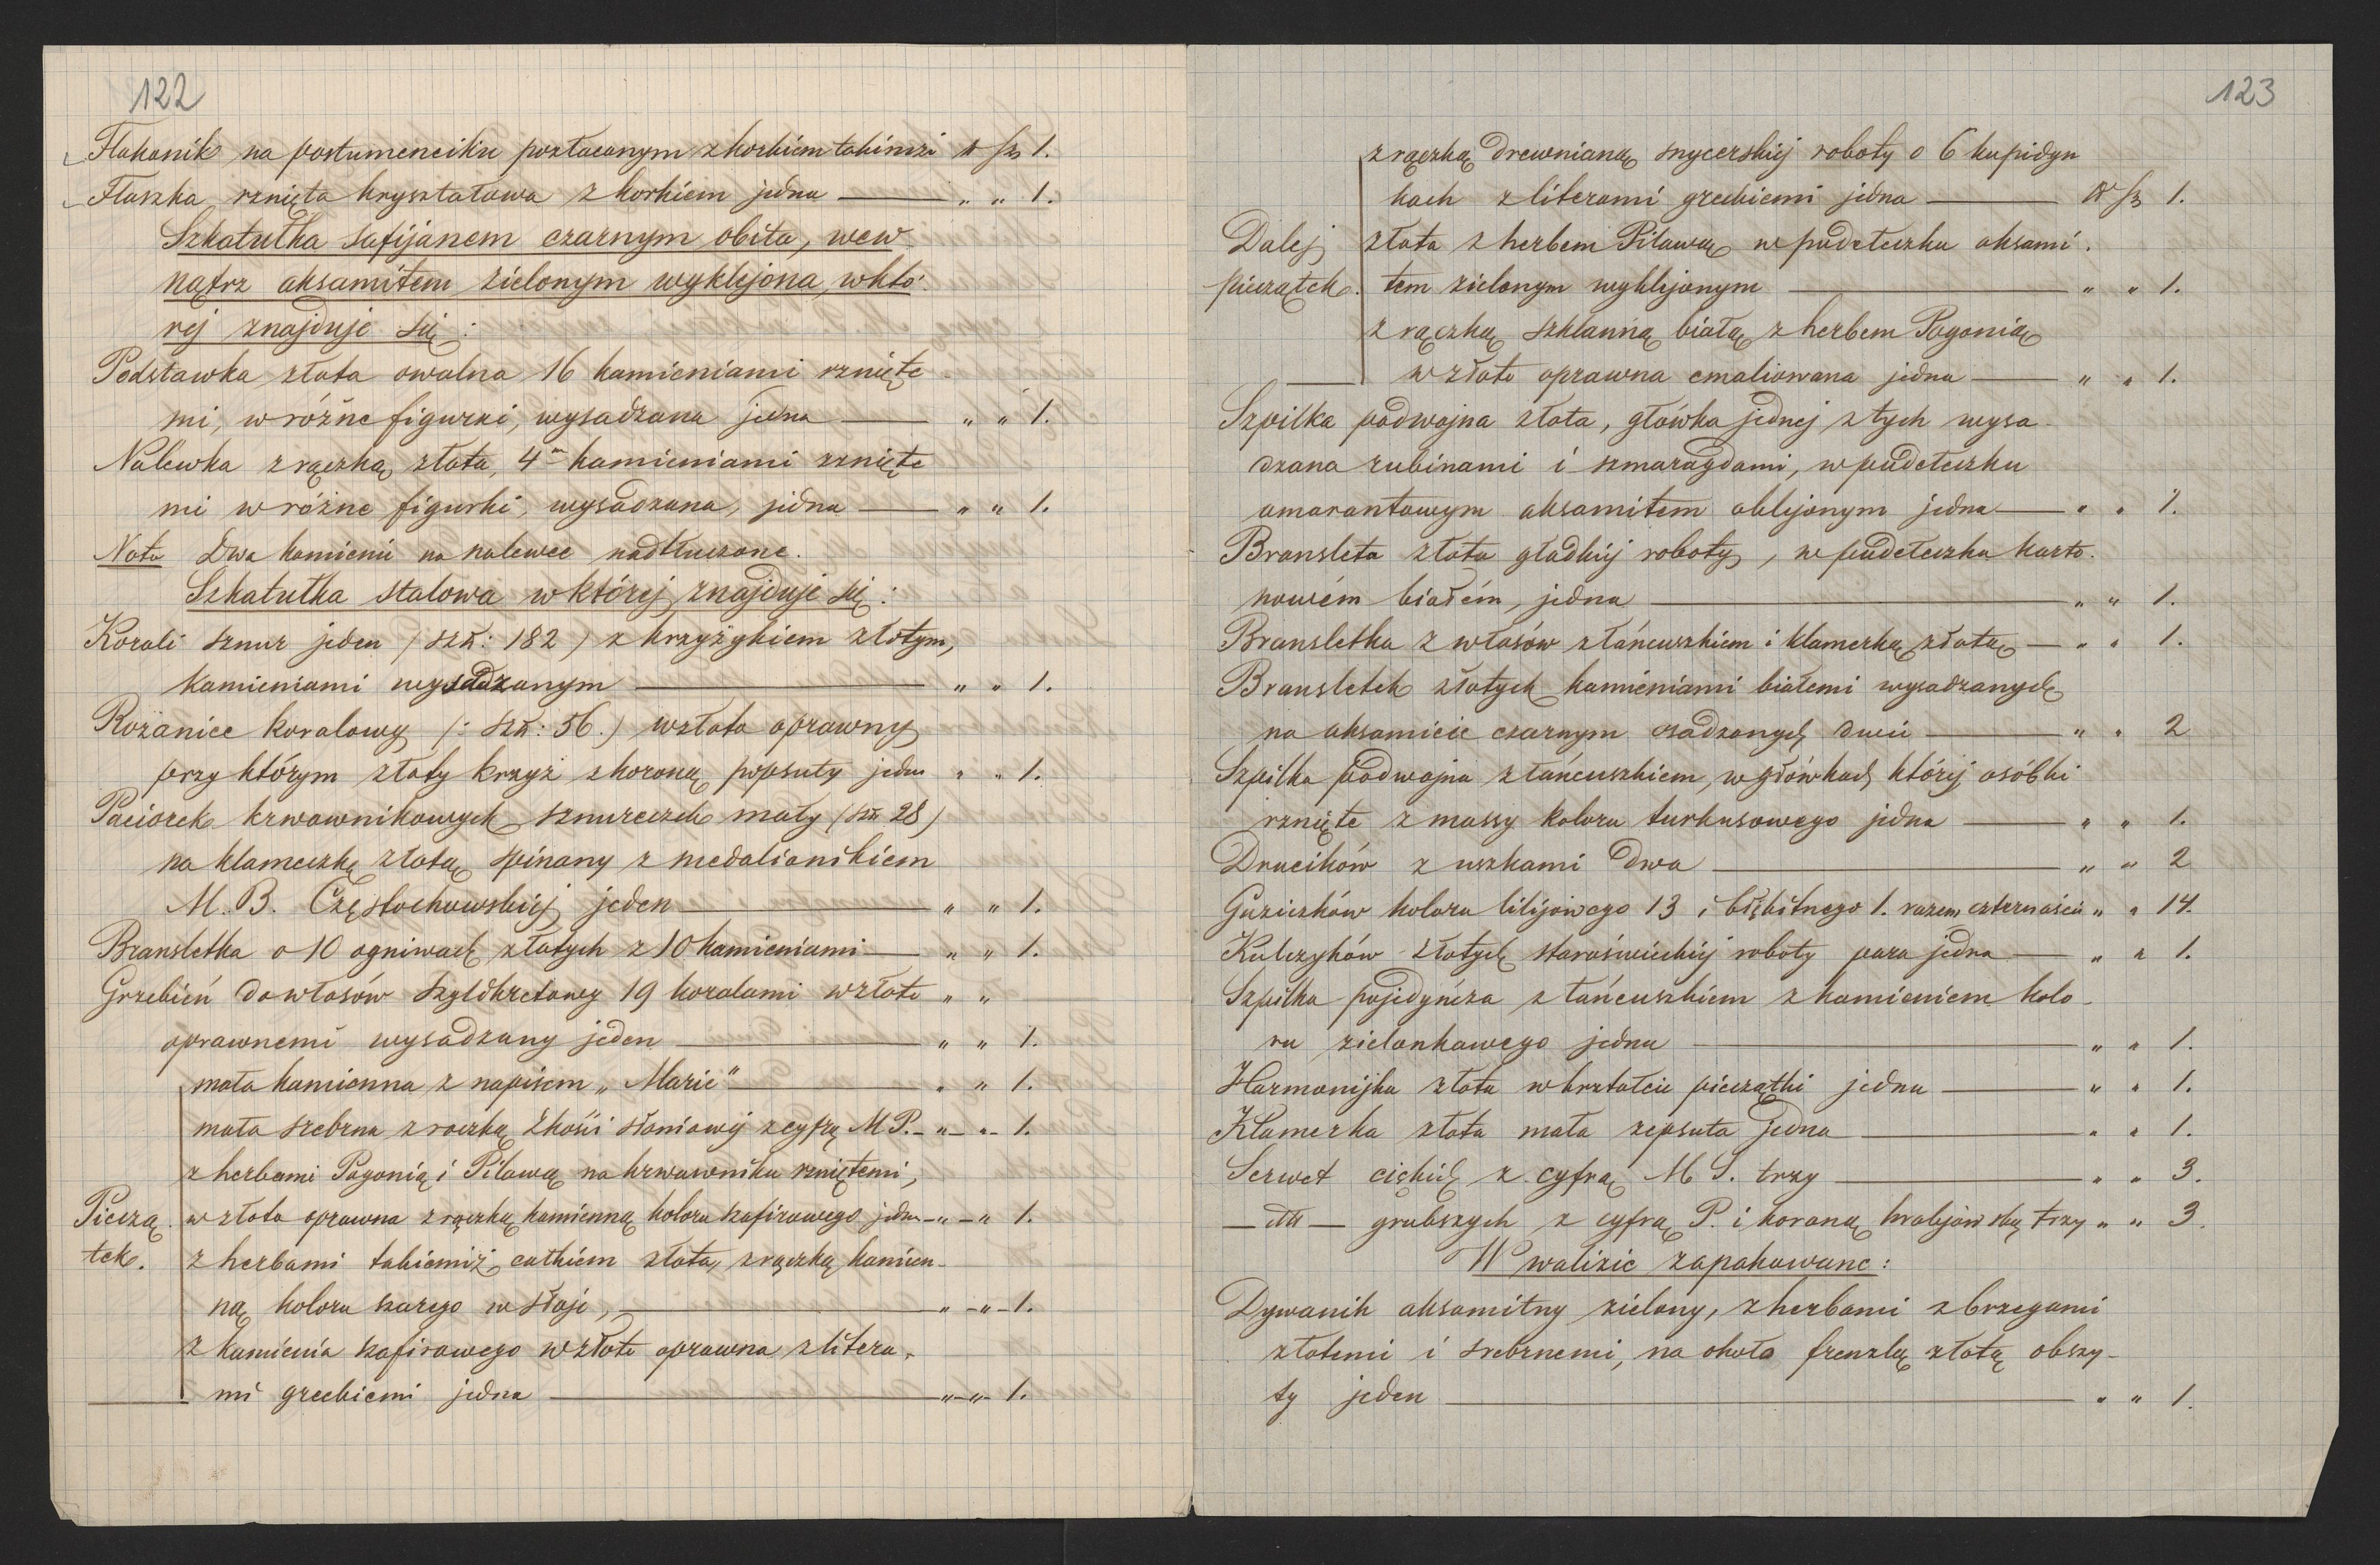 122
Flakonik na postumenciku pozłacanym z korkiem takimże N szt 1.
Flaszka rznięta kryształowa z korkiem jedna — „ „ 1.
Szkatułka safijanem czarnym obita, wew
nątrz aksamitem zielonym wyklejona, w któ.
rej znajduje się:
Podstawka złota owalna 16 kamieniami rznięte
mi, w różne figurki, wysadzana jedna — „ „ 1.
Nalewka z rączką złota, 4ma kamieniami rznięte
mi w różne figurki, wysadzana, jedna — „ „ 1.
Nota Dwa kamienie na nalewce nadtłuczone.
Szkatułka stalowa w której znajduje się:
Korali sznur jeden / szt: 182 / z krzyżykiem złotym,
kamieniami wysadzanym — „ „ 1.
Rożaniec koralowy /: szt: 56.) w złoto oprawny
przy którym złoty krzyż z koroną popsuty jeden „ „ 1.
Paciorek krwawnikowych sznureczek mały (szt 28)
na klameczkę złotą spinany z medalionikiem
M. B. Częstochowskiéj jeden — „ „ 1.
Bransletka o 10 ogniwach złotych z 10 kamieniami — „ „ 1.
Grzebień do włosów szyldkretowy 19 koralami w złoto „ „
oprawnemi wysadzany jeden — „ „ 1.
mała kamienna z napisem „Marie" — „ „ 1.
mała srebrna z raczką z kości słoniowéj z cyfrą M P. - „ - „ - 1.
z herbami Pogonią i Pilawą na krwawniku rzniętemi,
Pieczą. w złoto oprawna z rączką kamienną koloru szafirowego jedna - „ - „ 1.
tek. z herbami takiemiż całkiem złota, z rączką kamien-
ną koloru szarego w słoje, — „ - „ - 1.
z kamienia szafirowego w złoto oprawna z litera-
mi greckiemi jedna — „ - „ - 1.
123
z rączką drewnianą snycerskiéj roboty o 6 kupidyn
kach z literami greckiemi jedna — N szt 1.
Dalej złota z herbem Pilawą w pudełeczku aksami.
pieczątek. tem zielonym wyklejonym — „ „ 1.
z rączką szklanną białą z herbem Pogonią
w złoto oprawna emaliowana jedna — „ „ 1.
Szpilka podwojna złota, główka jednej z tych wysa-
dzana rubinami i szmaragdami, w pudełeczku
amarantowym aksamitem oklejonym jedna — „ „ 1.
Bransleta złota gładkiéj roboty, w pudełeczku karto.
nowém białém, jedna — „ „ 1.
Bransletka z włosów z łańcuszkiem i klamerką złotą — „ „ 1.
Bransletek złotych kamieniami białemi wysadzanych
na aksamicie czarnym osadzonych dwie — „ „ 2
Szpilka podwojna z łańcuszkiem, w główkach któréj osóbki
rznięte z massy koloru turkusowego jedna — „ „ 1.
Drucików z uszkami dwa — „ „ 2
Guziczków koloru lilijowego 13 i błękitnego 1. razem czternaście „ „ 14.
Kulczyków złotych staroświeckiéj roboty para jedna — „ „ 1.
Szpilka pojedyńcza z łańcuszkiem z kamieniem kolo-
ru zielonkawego jedna — „ „ 1.
Harmonijka złota w kształcie pieczątki jedna — „ „ 1.
Klamerka złota mała zepsuta jedna — „ „ 1.
Serwet cięków z cyfrą M S. trzy — „ „ 3.
— dtto — grubszych z cyfrą P. i koroną hrabiowską trzy „ „ 3.
W walizie zapakowane:
Dywanik aksamitny zielony, z herbami z brzegami
złotemi i srebrnemi, na około frenzlą złotą obszy-
ty jeden — „ „ 1.